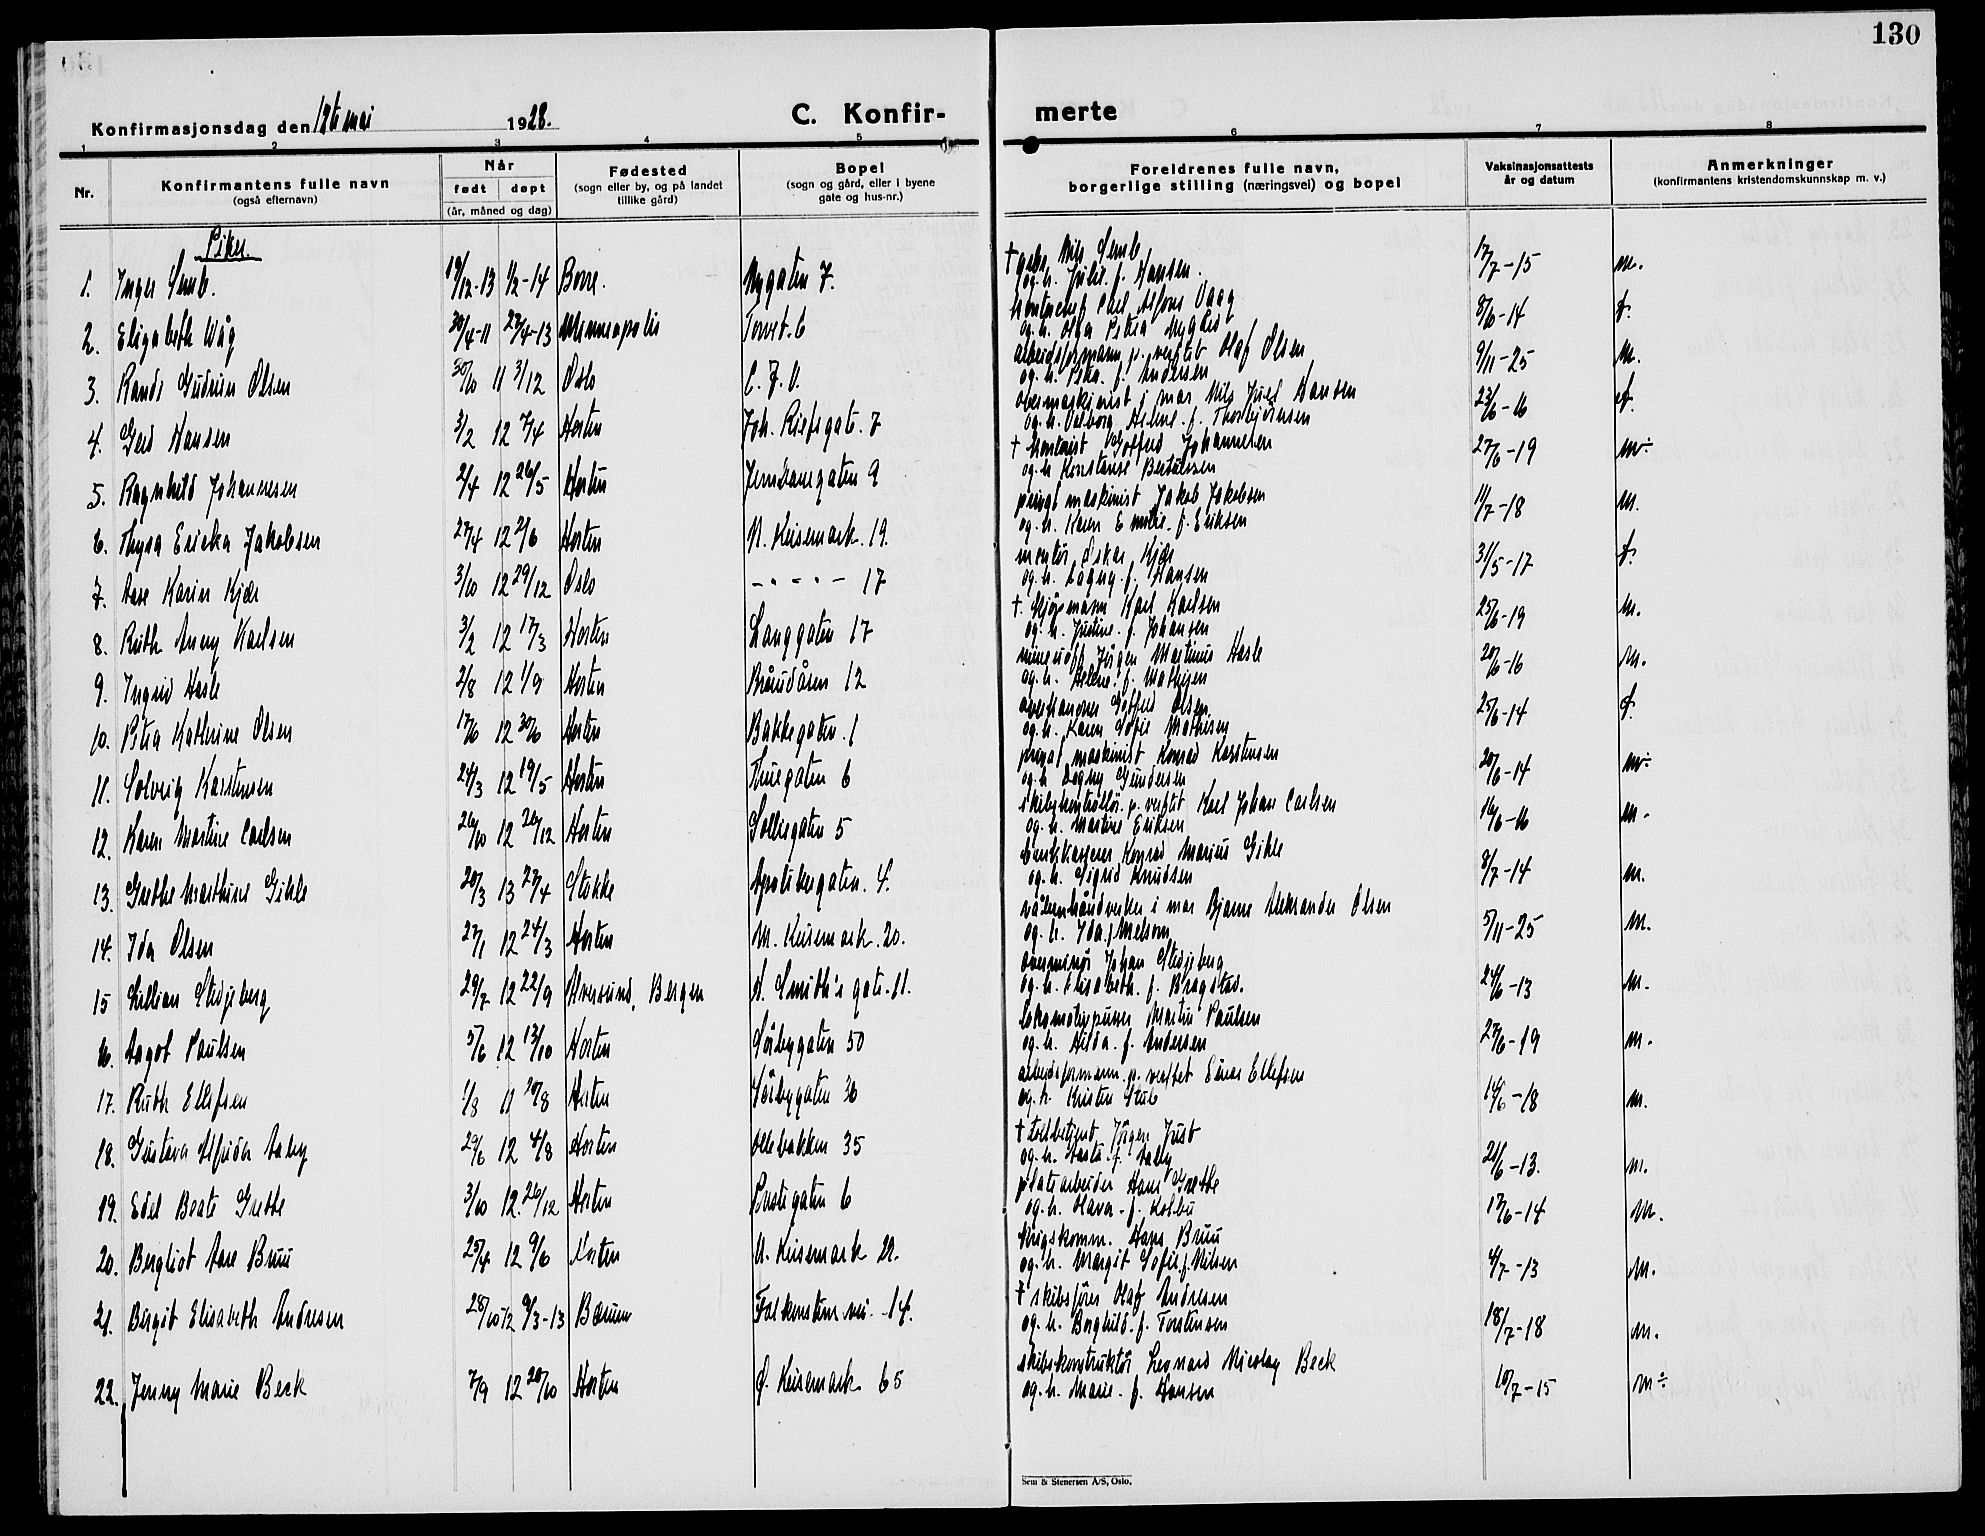 130
Konfirmasjonsdag den mai 1928.
C. Konfir- merte
1 2 3 4 5 6 7 8
Nr. Konfirmantens fulle navn (også efternavn) Når født døpt (år, måned og dag) Fødested (sogn eller by, og på landet tillike gård) Bopel (sogn og gård, eller i byene gate og hus-nr.) Foreldrenes fulle navn, borgerlige stilling (næringsvei) og bopel Vaksinasjonsattests år og datum Anmerkninger (konfirmantens kristendomskunnskap m. v.)
Piker.
† Nils Semb
1. Inger Semb. 19/12-13 1/2-14 Borre. Nygaten 7. og h. f. Hansen. 17/7-15 m.
Vaag
2. Elisabeth Wåg 30/4-11 27/4-13 Minneapolis Torvet. 6 og h. Olga Petra 8/6-14
arbeidsformann p. verftet Olaf Olsen
3. Randi Gudrun Olsen 30/10 11 3/12 Oslo og h. f. Andersen 9/11-25 m.
overmaskinist i mar Nils Juel Hansen
4. Gerd Hansen 3/2 12 7/4 Horten Joh. gate. 7 og h. Valborg Helene. f. Thorbjörnsen 23/6-16
† Kontorist Gotfred Johannesen
5. Ragnhild Johannesen 2/4 12 26/5 Horten Jernbanegaten 9 og h. Konstanse Bertelssen 27/6-19
privat maskinist Jakob Jakobsen
6. Thyra Ericka Jakobsen 27/4 12 2/6 Horten N. Keisemark. 19. og h. Karen Emilie. f. Eriksen 11/7-18 m.
Oskar Kjær
7. Aase Karin Kjær 3/10 12 29/12 Oslo - - - - - 17 og h. Dagny. f. Hansen 31/5-17
† Sjömann Karl Karlsen
8. Ruth Anny Karlsen 3/2 12 17/3 Horten Langgaten 17 og h. Justine. f. Johansen 25/6-19 m.
Jörgen Martinus Hasle
9. Ingrid Hasle 2/8 12 1/9 Horten Bråudåsen 12 og h. Helene. f. Mathisen 20/6-16 m.
Gotfred Olsen
10. Petra Kathrine Olsen 17/6 12 30/6 Horten Bakkegaten. 1 og h. Karen Sofie Mathisen 25/6-14
privat maskinist Konrad Karstensen
11. Solveig Karstensen 24/3 12 19/5 Horten 6 og h. Dagny Gundersen 20/6-14
p. verftet Karl Johan Carlsen
12. Karen Martine Carlsen 26/10 12 26/12 Horten Solliegaten 5 og h. Martine Eriksen 16/6-16 m.
bankkasserer Konrad Marius Gihle
13. Grethe Marthine Gihle 20/3 13 27/4 Stokke Apotekergaten. 4. og h. Sigrid Knudsen 8/7-14 m.
våbenhåndverker i mar Bjarne Aleksander Olsen
14. Ida Olsen 27/1 12 24/3 Horten M. Keisemark. 20. og h. Ida f. Melsom 5/11-25 m.
overminör Johan Stedjeberg
15 Lillian Stedjeberg 29/7 12 22/9 Alversund, Bergen A. Smith's gate. 11. og h. Elisabeth. f. Bragstad. 24/6-13 m.
lokomotivpusser Martin Paulsen
16. Aagot Paulsen 5/6 12 13/10 Horten Sörbygaten 50 og h. Hilda. f. Andersen 27/6-19 m.
arbeidsformann. p. verftet Einar Ellefsen
17. Ruth Ellefsen 1/8 11 20/8 Horten Sörbygaten 36 og h. Kristin Stub 14/6-18 m.
† tollbetjent Jörgen Just
18. Gustava Alfrida Aaby 29/6 12 4/8 Horten Ollebakken 35 og h. f. Aaby 21/6-13. m.
platearbeider Hans Grette
19. Edel Beate Grette 3/10 12. 26/12 Horten 6 og h. Olava. f. Kolbu 17/6-14 m.
krigskomm. Hans Bruu
20. Bergliot Aase Bruu 25/4 12 9/6 Horten N. Keisemark 22. og h. Margit Sofie. f. Nilsen 4/7-13 m.
† skibsförer Olaf Andresen
21. Birgit Elisabeth Andresen 28/10 12 9/3-13 Bærum Falkensten vei. 14. og h. Borghild. f. Torstensen 18/7-18 m.
skibskonstruktör Leonard Nicolay Beck
22. Jenny Marie Beck 7/9 12 20/10 Horten Ö. Keisemark 65 og h. Marie. f. Hansen 10/7-15 m÷
Sem & Stenersen A/S, Oslo.